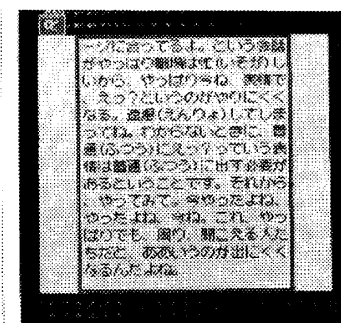 ージに合ってるよ。という会話
がやっぱり職場は忙(いそが)し
いから、やっぱりうね、表情で
、えっ？というのがやりにくく
なる。遠慮(えんりょ)してしま
ってね。わからないときに、普
通(ふつう)にえっ？っていう表
情は普通(ふつう)に出す必要が
あるということです。それから
、やってみて。今やったよね、
やったよね、今ね。これ、やっ
ぱりでも、周り、聞こえる人た
ちだと、ああいうのが出にくく
なるんだよね。